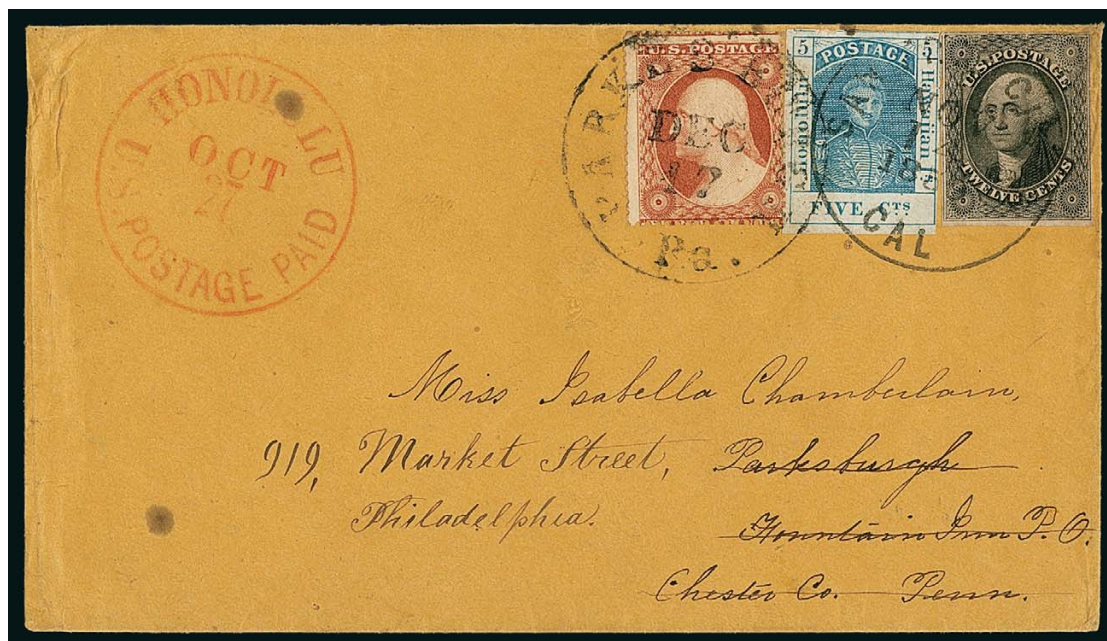 HONOLULU
OCT
27
U.S. POSTAGE PAID
PARKESB
DEC
17
Pa.
U.S. POSTAGE
5 POSTAGE 5
Honolulu
Hawaiian Is.
FIVE CTS
CAL
U.S. POSTAGE
TWELVE CENTS
Miss Isabella Chamberlain,
919, Market Street, Parksburgh
Philadelphia.
Fountain Inn P.O.
Chester Co. Penn.